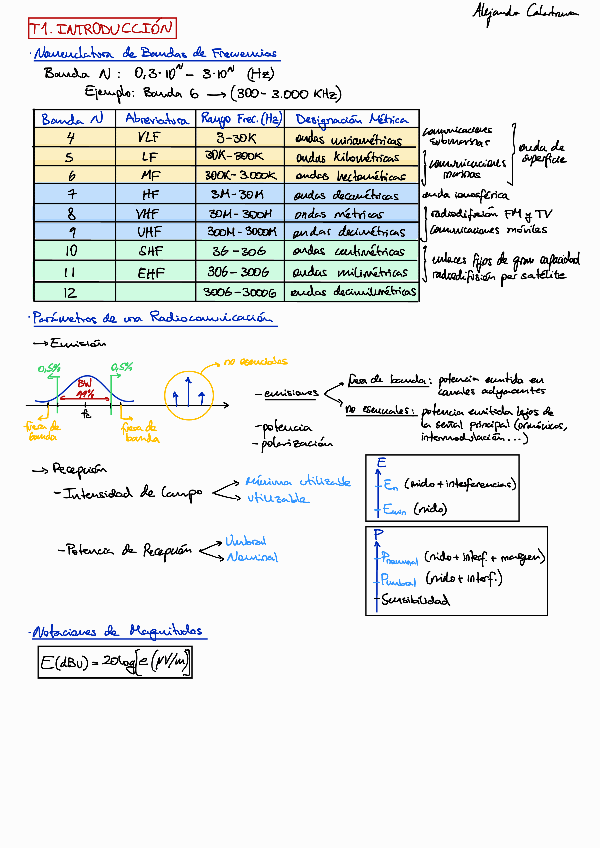 Alejandro
T1. INTRODUCCIÓN
· Nomenclatura de Bandas de Frecuencias
Banda N : 0,3·10^N – 3·10^N (Hz)
Ejemplo: Banda 6 → (300 – 3.000 KHz)
Banda N Abreviatura Rango Frec.(Hz) Designación Métrica
4 VLF 3-30K ondas miriamétricas
5 LF 30K-300K ondas kilométricas
6 MF 300K-3.000K ondas hectométricas
7 HF 3M-30M ondas decamétricas
8 VHF 30M-300M ondas métricas
9 UHF 300M-3000M ondas decimétricas
10 SHF 3G-30G ondas centimétricas
11 EHF 30G-300G ondas milimétricas
12 300G-3000G ondas decimilimétricas
comunicaciones
submarinas
comunicaciones
marinas
onda de
superficie
onda ionosférica
radiodifusión FM y TV
comunicaciones móviles
enlaces fijos de gran capacidad
radiodifusión por satélite
· Parámetros de una Radiocomunicación
→ Emisión
0,5% 0,5%
BW
99%
fc
fuera de
banda
fuera de
banda
no esenciales
- emisiones
fuera de banda: potencia emitida en
canales adyacentes
no esenciales: potencia emitida lejos de
la señal principal (armónicos,
intermodulación...)
- potencia
- polarización
→ Recepción
- Intensidad de Campo
Mínima utilizable
utilizable
E
En (ruido + interferencias)
Emin (ruido)
- Potencia de Recepción
Umbral
Nominal
P
Pnominal (ruido + interf. + margen)
Pumbral (ruido + interf.)
Sensibilidad
· Notaciones de Magnitudes
E(dBu) = 20log[e(μV/m)]